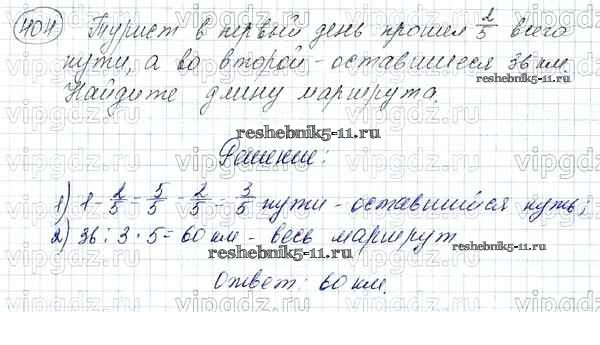 404 Турист в первый день прошел 2/5 всего
пути, а во второй - оставшиеся 36 км.
Найдите длину маршрута.
reshebnik5-11.ru
reshebnik5-11.ru
Решение:
1) 1 - 2/5 = 5/5 - 2/5 = 3/5 пути - оставшийся путь;
2) 36 : 3 · 5 = 60 км - весь маршрут
reshebnik5-11.ru
reshebnik5-11.ru
Ответ: 60 км.
reshebnik5-11.ru